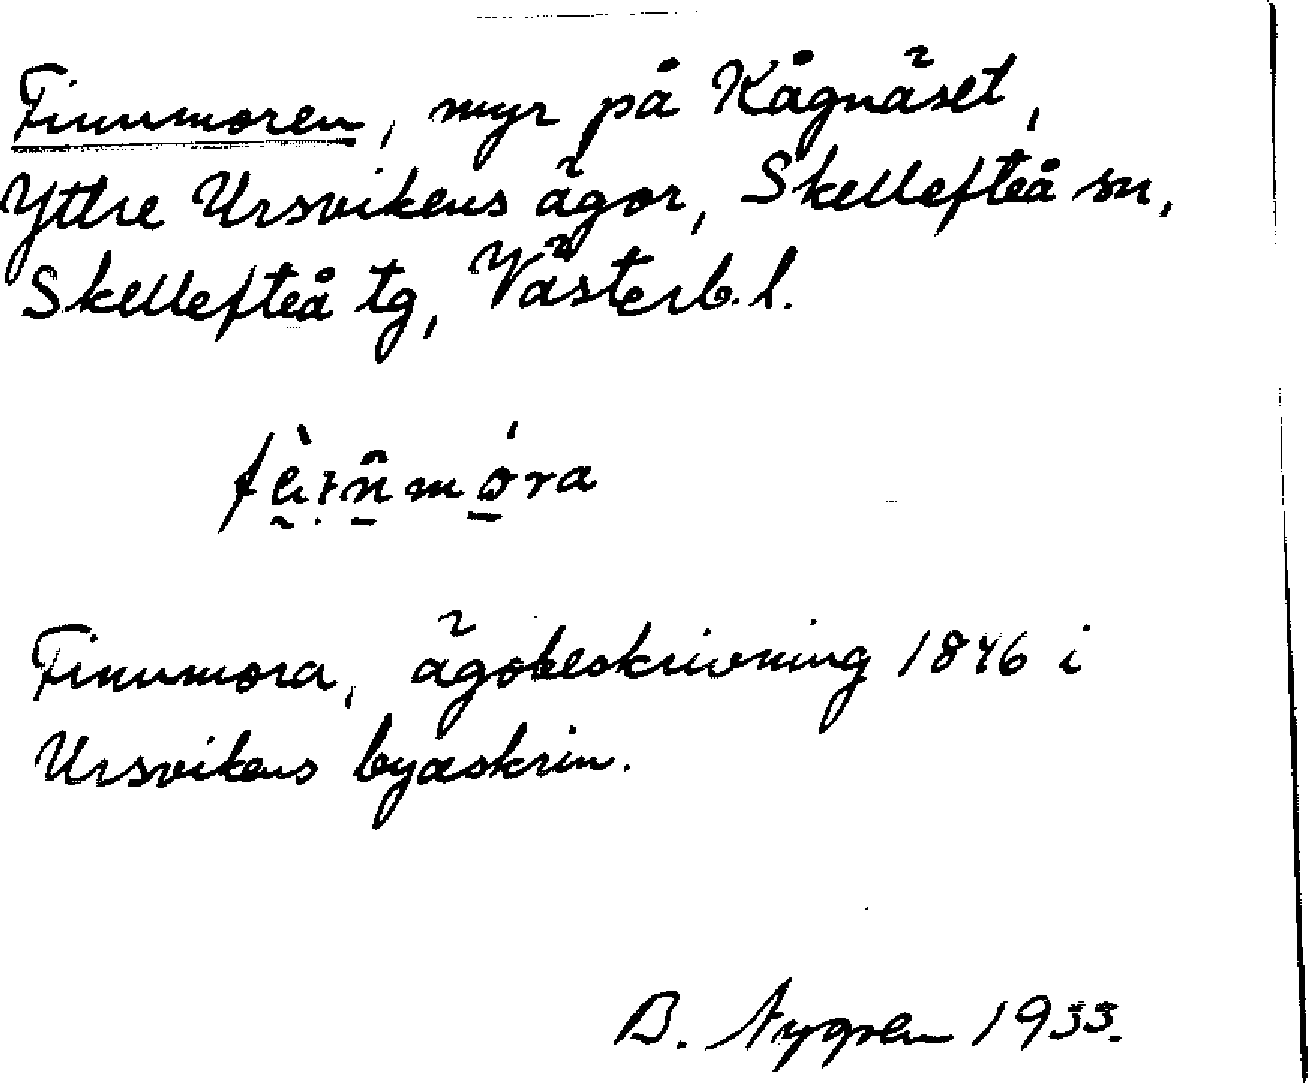 Finnmoren, myr på Kågnäset,
Yttre Ursvikens ägor, Skellefteå sn,
Skellefteå tg, Västerb. l.
Finnmora, ägobeskrivning 1846 i
Ursvikens byaskrin.
B. Nygren 1933.